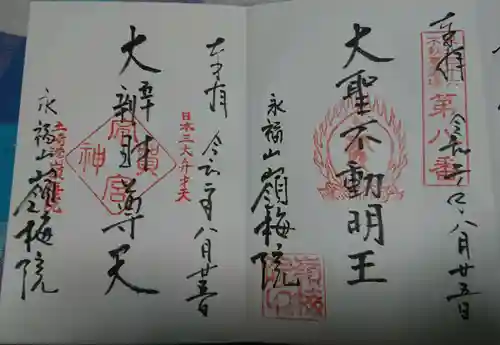 奉拝
第八番
令和二年八月廿五日
大聖不動明王
永福山嶺梅院
奉拝
日本三大弁才天
令和二年八月廿五日
大辨財尊天
永福山嶺梅院